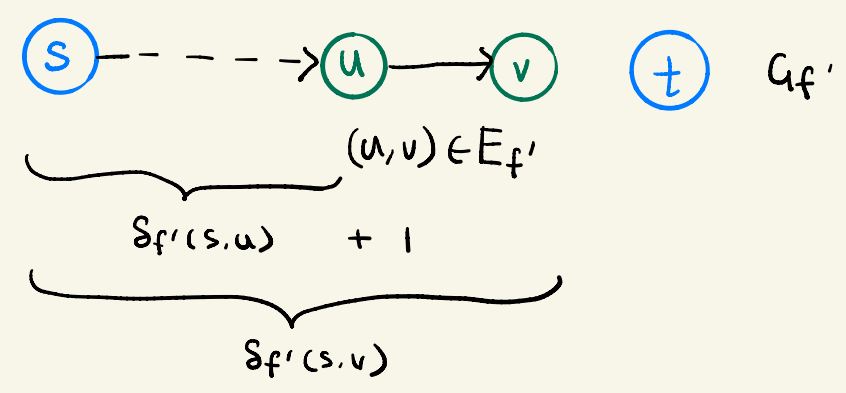 s u v t G_f'
(u,v) ∈ E_f'
δ_f'(s,u) + 1
δ_f'(s,v)